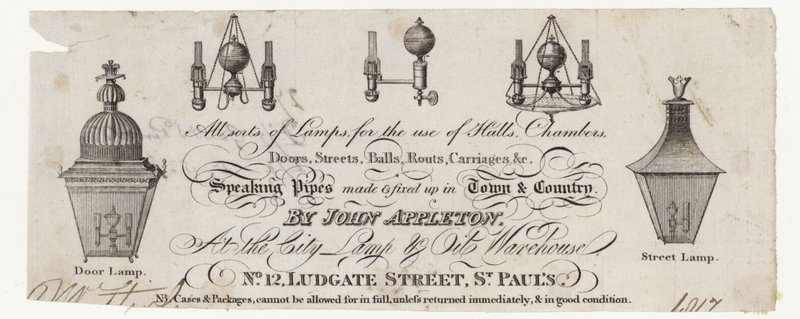 All sorts of Lamps, for the use of Halls, Chambers,
Doors, Streets, Balls, Routs, Carriages, &c.
Speaking Pipes made & fixed up in Town & Country.
BY JOHN APPLETON.
At the City Lamp & Oil Warehouse,
No. 12, LUDGATE STREET, ST. PAUL'S.
NB. Cases & Packages, cannot be allowed for in full, unleſs returned immediately, & in good condition.
Door Lamp.
Street Lamp.
1817